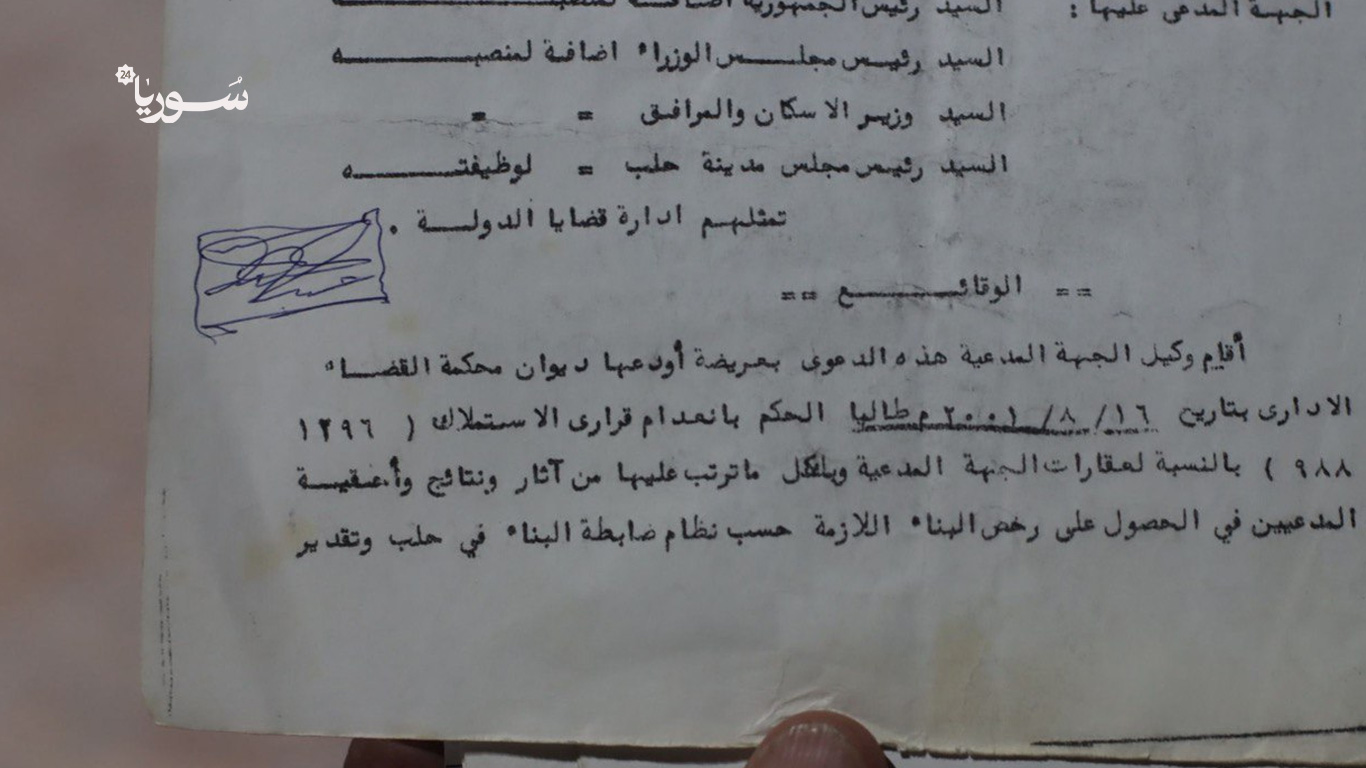 سوريا 24
الجهة المدعى عليها : السيد رئيس الجمهورية اضافة لمنصبه
السيد رئيس مجلس الوزراء اضافة لمنصبه
السيد وزير الاسكان والمرافق = =
السيد رئيس مجلس مدينة حلب = لوظيفته
تمثلهم ادارة قضايا الدولة .
== الوقائع ==
أقام وكيل الجهة المدعية هذه الدعوى بعريضة أودعها ديوان محكمة القضاء
الادارى بتاريخ ١٦/ ٨/ ٢٠٠١ م طالبا الحكم بانعدام قرارى الاستملاك ( ١٢٩٦
٩٨٨ ) بالنسبة لعقارات الجهة المدعية وبكل ماترتب عليها من آثار ونتائج وأحقية
المدعيين في الحصول على رخص البناء اللازمة حسب نظام ضابطة البناء في حلب وتقدير